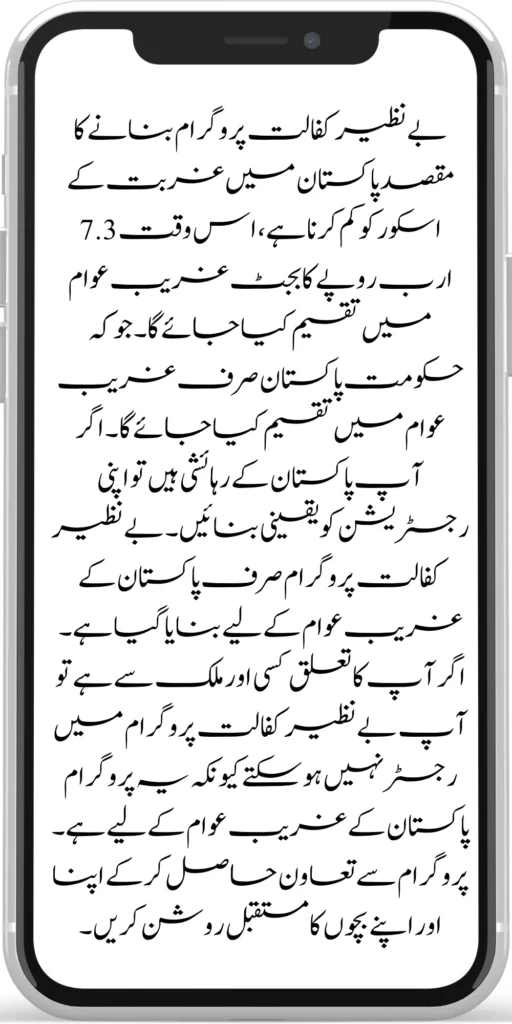 بے نظیر کفالت پروگرام بنانے کا
مقصد پاکستان میں غربت کے
اسکور کو کم کرنا ہے، اس وقت 7.3
ارب روپے کا بجٹ غریب عوام
میں تقسیم کیا جائے گا۔ جو کہ
حکومت پاکستان صرف غریب
عوام میں تقسیم کیا جائے گا۔ اگر
آپ پاکستان کے رہائشی ہیں تو اپنی
رجسٹریشن کو یقینی بنائیں۔ بے نظیر
کفالت پروگرام صرف پاکستان کے
غریب عوام کے لیے بنایا گیا ہے۔
اگر آپ کا تعلق کسی اور ملک سے ہے تو
آپ بے نظیر کفالت پروگرام میں
رجسٹر نہیں ہو سکتے کیونکہ یہ پروگرام
پاکستان کے غریب عوام کے لیے ہے۔
پروگرام سے تعاون حاصل کر کے اپنا
اور اپنے بچوں کا مستقبل روشن کریں۔